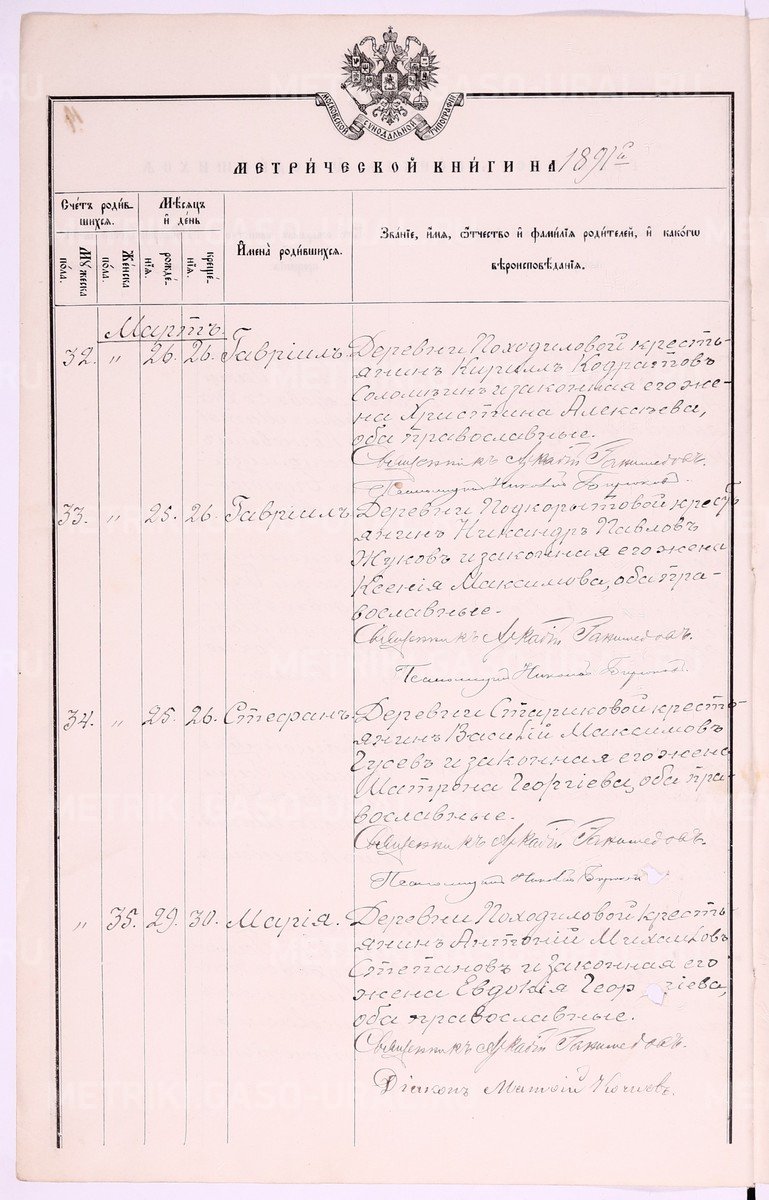 МОСКОВСКОЙ СѴНОДАЛЬНОЙ ТИПОГРАФІИ
МЕТРИ́ЧЕСКОЙ КНИ́ГИ НА 1891 г.
Сче́тъ роди́вшихся.
Му́жеска по́ла.
Же́нска по́ла.
Мѣ́сяцъ и҆ де́нь
рожде́нїѧ.
креще́нїѧ.
И҆мена̀ роди́вшихсѧ.
Зва́нїе, и҆́мѧ, ѻ҆́тчество и҆ фами́лїѧ роди́телей, и҆ како́гѡ
вѣроисповѣ́данїѧ.
Мартъ
32. „ 26. 26. Гавріилъ. Деревни Походиловой кресть-
янинъ Кириллъ Кодратовъ
Соломѣинъ и законная его же-
на Христина Алексѣева,
оба православные.
Священникъ Аркадій Ганимедовъ.
Псаломщикъ Николай Бирюковъ.
33. „ 25. 26. Гавріилъ. Деревни Подкорытовой кресть-
янинъ Никандръ Павловъ
Жуковъ и законная его жена
Ксенія Максимова, оба пра-
вославные.
Священникъ Аркадій Ганимедовъ.
Псаломщикъ Николай Бирюковъ.
34. „ 25. 26. Стефанъ. Деревни Стариковой кресть-
янинъ Василій Максимовъ
Гусевъ и законная его жена
Матрона Георгіева, оба пра-
вославные.
Священникъ Аркадій Ганимедовъ.
Псаломщикъ Николай
„ 35. 29. 30. Марія. Деревни Походиловой кресть-
янинъ Антоній Михаиловъ
Степановъ и законная его
жена Евдокія Георгіева,
оба православные.
Священникъ Аркадій Ганимедовъ.
Діаконъ Матвій